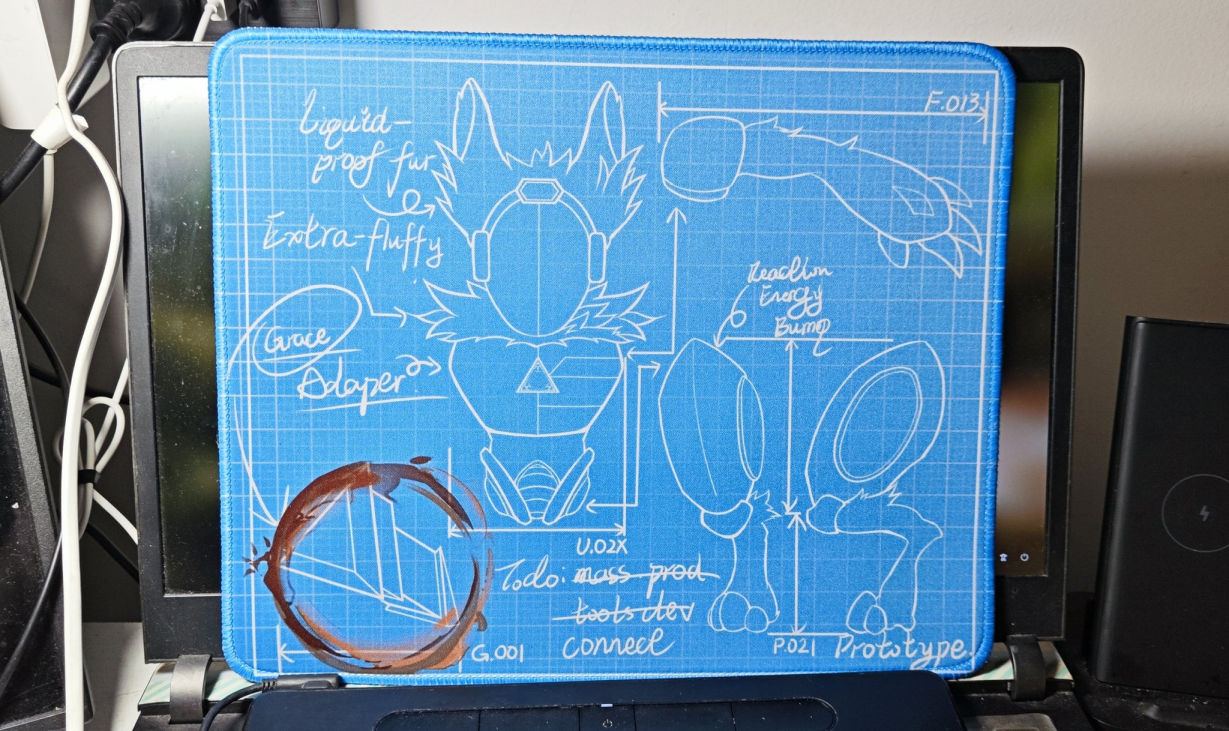 Liquid-
proof fur
Extra-fluffy
Grace
Adaper
F.013
Reaction
Energy
Bump
U.02X
Todo: mass prod
tools dev
connect
G.001
P.021
Prototype.